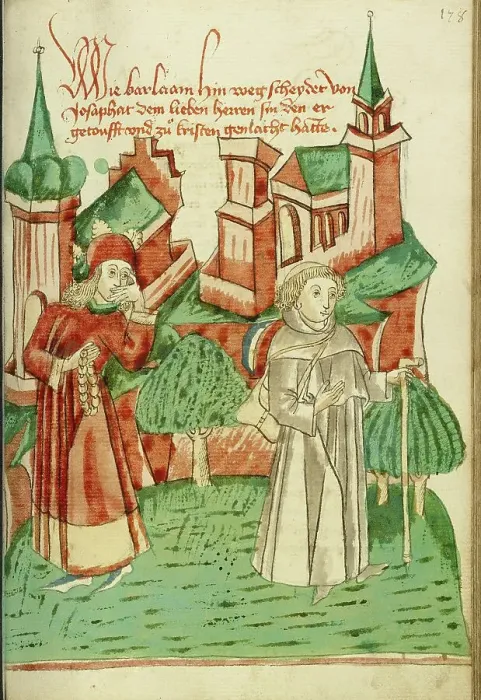 178
Wie barlaam hin weg scheydet von
Josaphat dem lieben herren sin den er
getoufft vnd zuͦ kristen gemacht hatte.